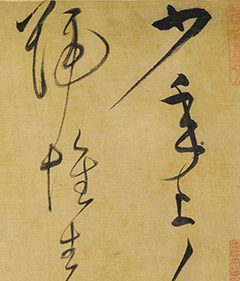 少年上人
號懷素